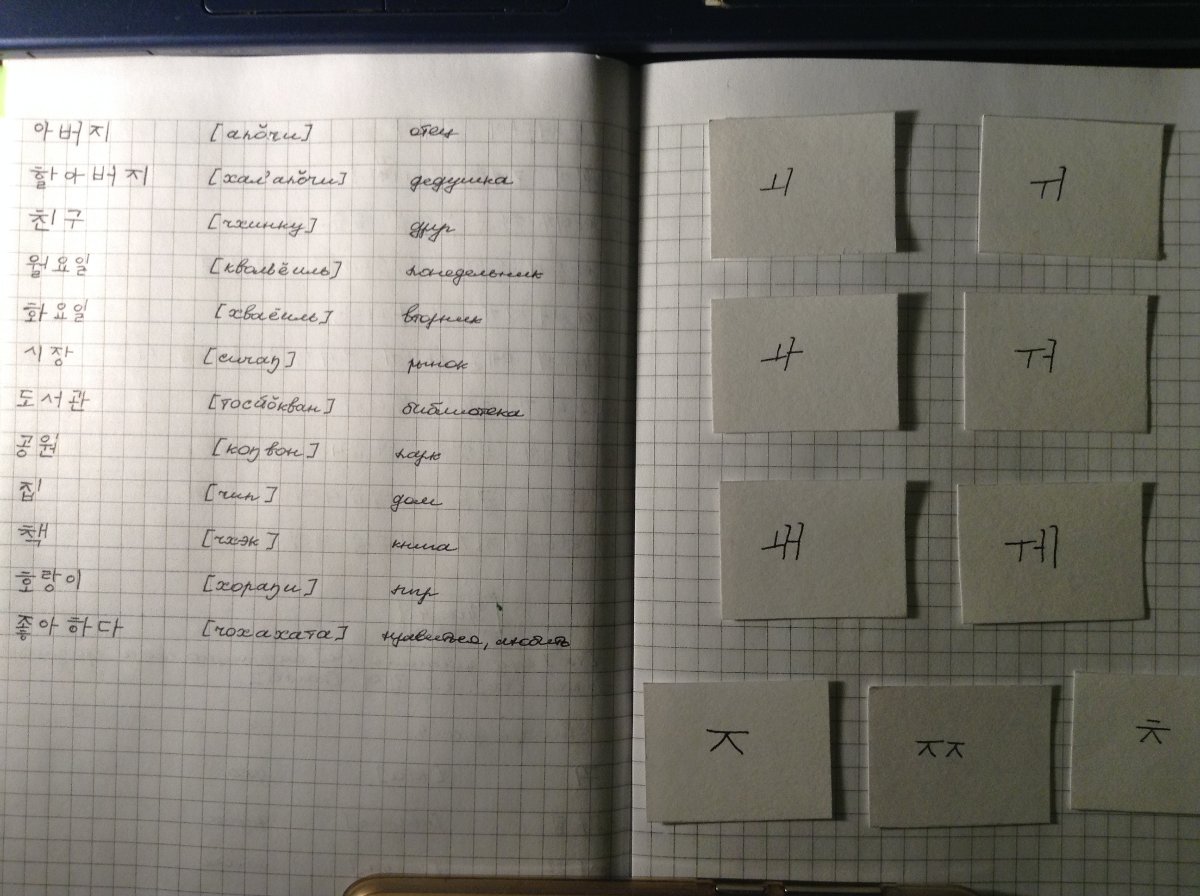 아버지 [апŏчи] отец
할아버지 [хал'апŏчи] дедушка
친구 [чхинку] друг
월요일 [квольёиль] понедельник
화요일 [хваёиль] вторник
시장 [сичаŋ] рынок
도서관 [тосŏкван] библиотека
공원 [коŋвон] парк
집 [чип] дом
책 [чхэк] книга
호랑이 [хораŋи] тигр
좋아하다 [чохахата] нравиться, любить
ㅚ ㅟ
ㅘ ㅝ
ㅙ ㅞ
ㅈ ㅉ ㅊ